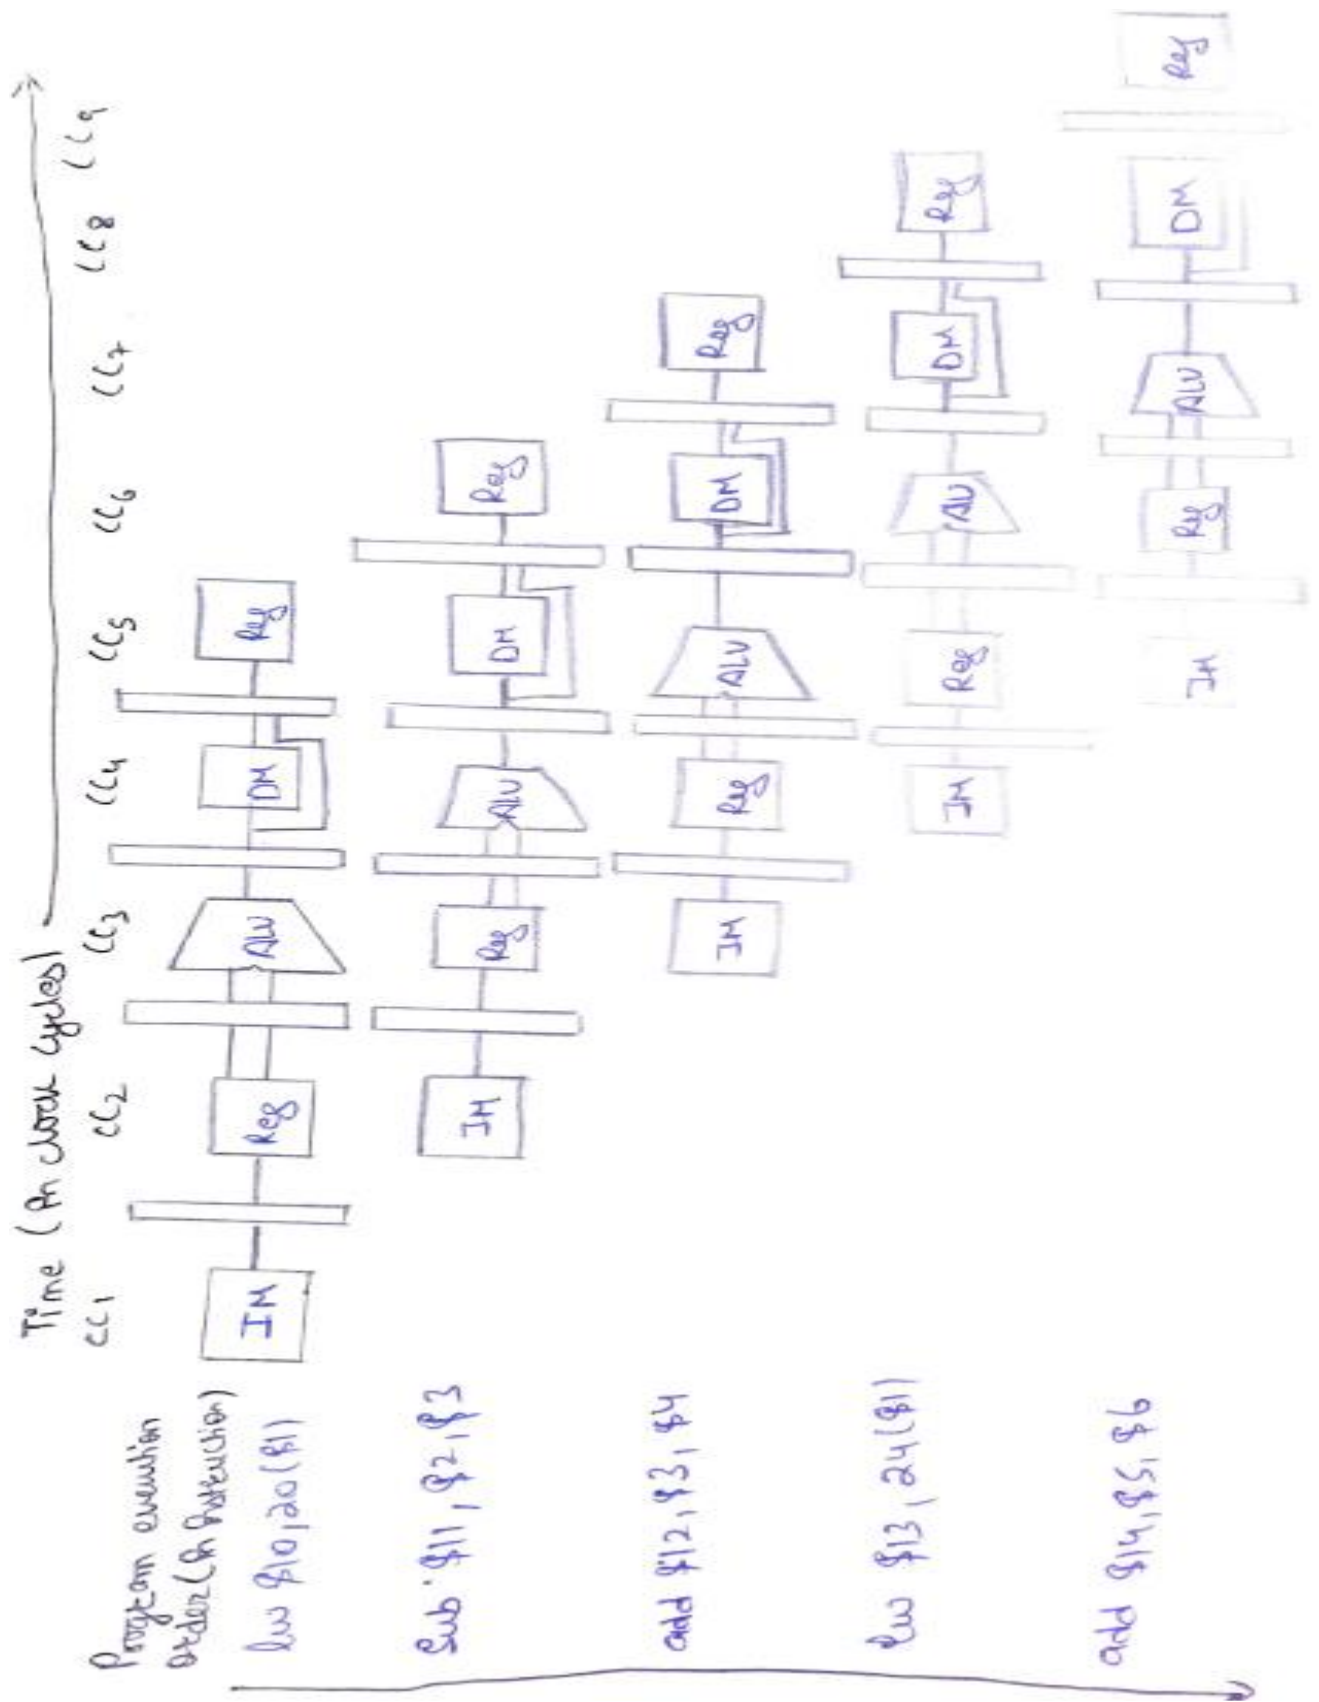 Time (in clock cycles)
CC1 CC2 CC3 CC4 CC5 CC6 CC7 CC8 CC9
Program execution
order (in instruction)
lw $10,20($1)
IM Reg ALU DM Reg
Sub $11, $2, $3
IM Reg ALU DM Reg
add $12, $3, $4
IM Reg ALU DM Reg
lw $13, 24($1)
IM Reg ALU DM Reg
add $14, $5, $6
IM Reg ALU DM Reg